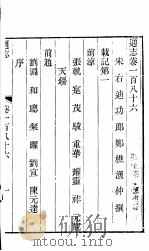 通志卷一百八十六
宋右迪功郎鄭樵漁仲撰
載記第一
前涼
張軌 寔 茂 駿 重華 耀靈 祚 元靚
天錫
前趙
劉淵 和 聰 粲 曜 劉宣 陳元達
序
通志
卷一百八十六